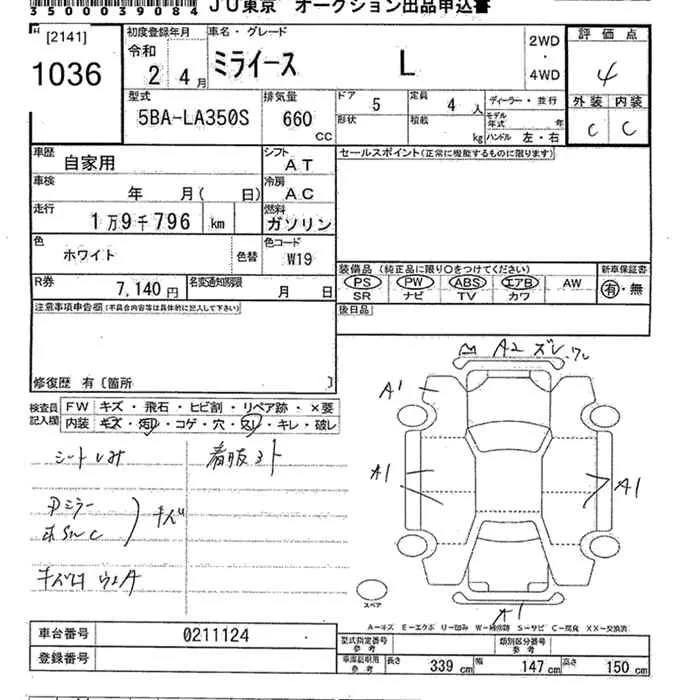 3500039084 JU東京 オークション出品申込書
[2141]
1036
初度登録年月
令和
2 4月
車名・グレード
ミライース L
2WD
・
4WD
評価点
4
外装 内装
C C
型式
5BA-LA350S
排気量
660
CC
ドア 5
定員 4人
ディーラー・並行
形状
積載 kg
モデル年式 年
ハンドル 左・右
車歴
自家用
シフト
AT
セールスポイント(正常に機能するものに限ります)
車検
年 月( 日)
冷房
AC
走行
1万9千796 km
燃料
ガソリン
色
ホワイト
色替
色コード
W19
R券
7,140円
名変通知期限
月 日
装備品(純正品に限り〇をつけてください)
PS PW ABS エアB AW
SR ナビ TV カワ
新車保証書
有・無
後日品
注意事項申告欄(不具合内容等は具体的に記入して下さい)
修復歴 有〔箇所 〕
検査員記入欄
FW キズ・飛石・ヒビ割・リペア跡・×要
内装 キズ・汚レ・コゲ・穴・スレ・キレ・破レ
シートしみ
キズ
A2 ズレ
A1
A1
A1
A1
スペア
A−キズ E−エクボ U−凹み W−補修跡 S−サビ C−腐食 XX−交換済
車台番号 0211124
登録番号
型式指定番号
参考
類別区分番号
参考
車庫証明用
参考
長さ 339cm 幅 147cm 高さ 150cm